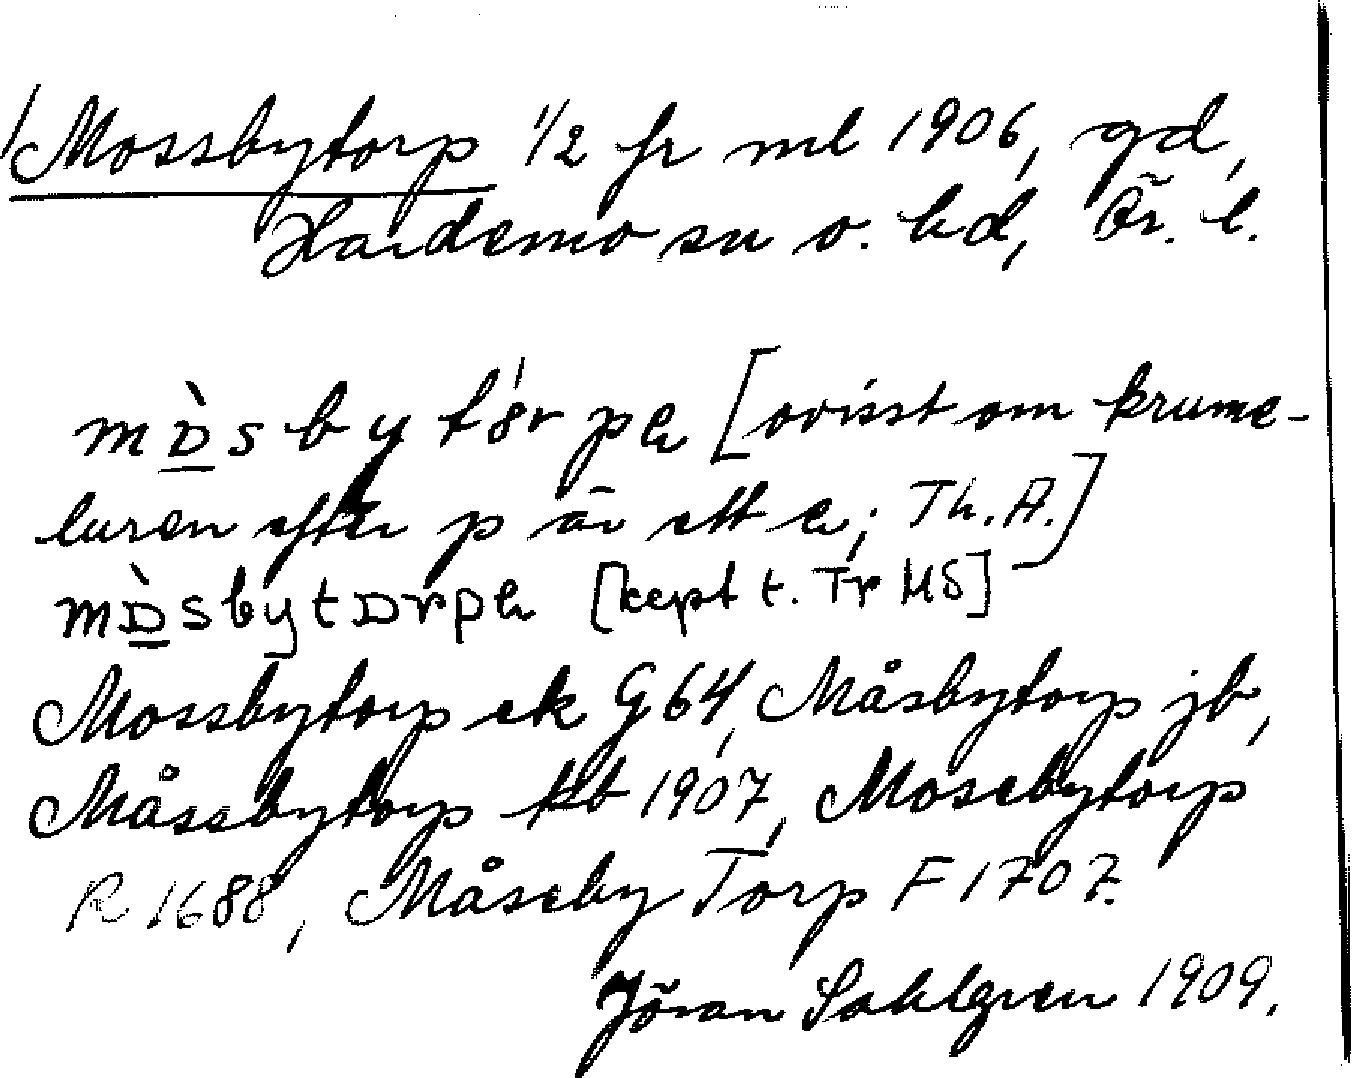 Mossbytorp 1/2 fr ml 1906, gd,
Hardemo sn o. hd, Ör. l.
[ovisst om krume-
luren efter p är ett a; Th. A.]
[cept t. Tr MS]
Mossbytorp ek G64, Måsbytorp jb,
Måssbytorp kb 1907, Mosebytorp
R 1688, Måseby Torp F 1707.
Jöran Sahlgren 1909.